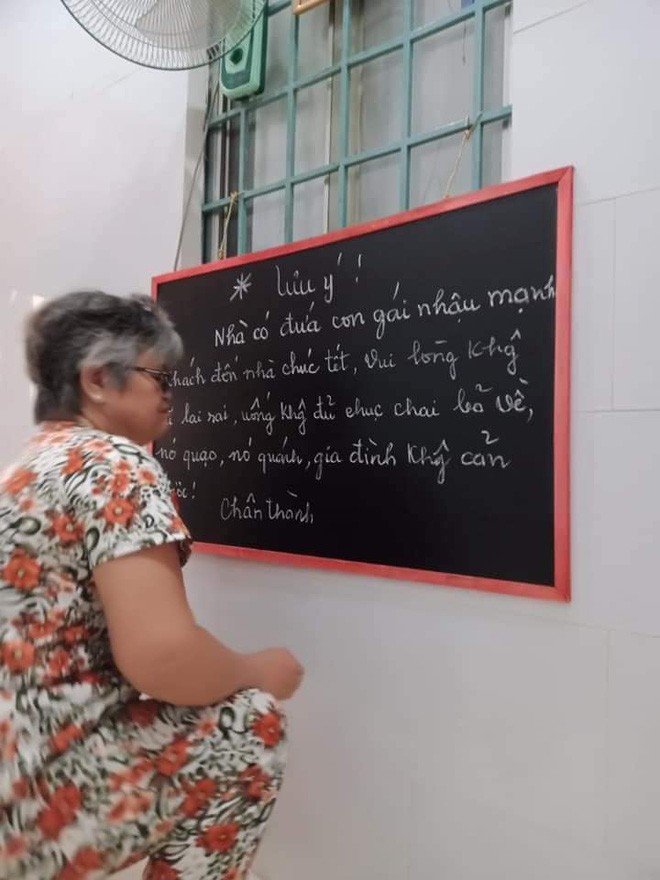 * Lưu ý !
Nhà có đứa con gái nhậu mạnh
khách đến nhà chúc tết, vui lòng khg
lai rai, uống khg đủ chục chai bỏ về,
nó quạo, nó quánh, gia đình khg cản
Chân thành